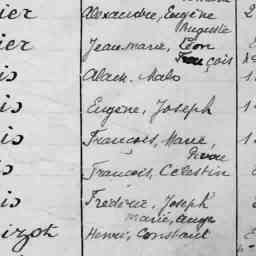 ier Alexandre, Eugène 2
Auguste
ier Jean marie, Léon
François
is Alain, Malo 1
is Eugène, Joseph 1
is François, Marie, 1
Pierre
is François, Célestin
is Frédéric, Joseph
marie, ange
Henri, Constant